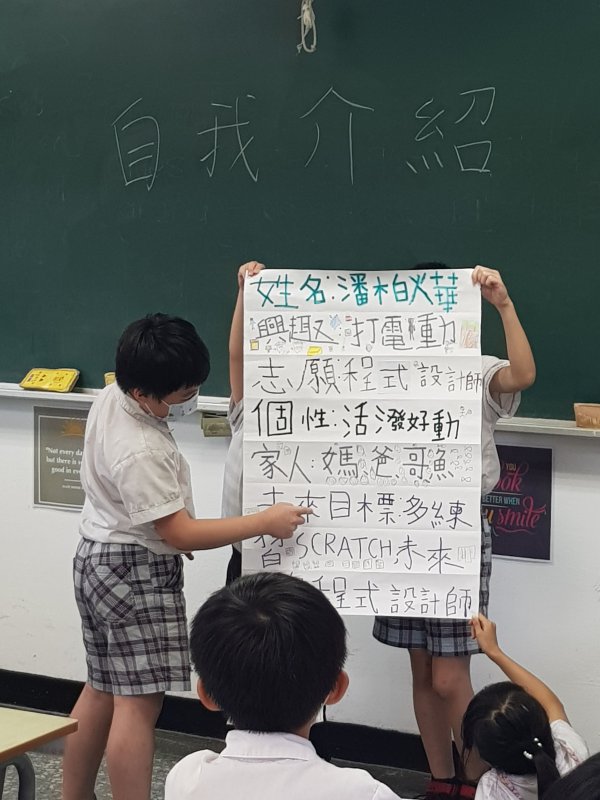 自我介紹
姓名:潘柏燁
興趣:打電動
志願:程式設計師
個性:活潑好動
家人:媽爸哥魚
未來目標:多練
習SCRATCH,未來
程式設計師
"Not every day
but there is
good in ever
YOU
look
BETTER WHEN
smile